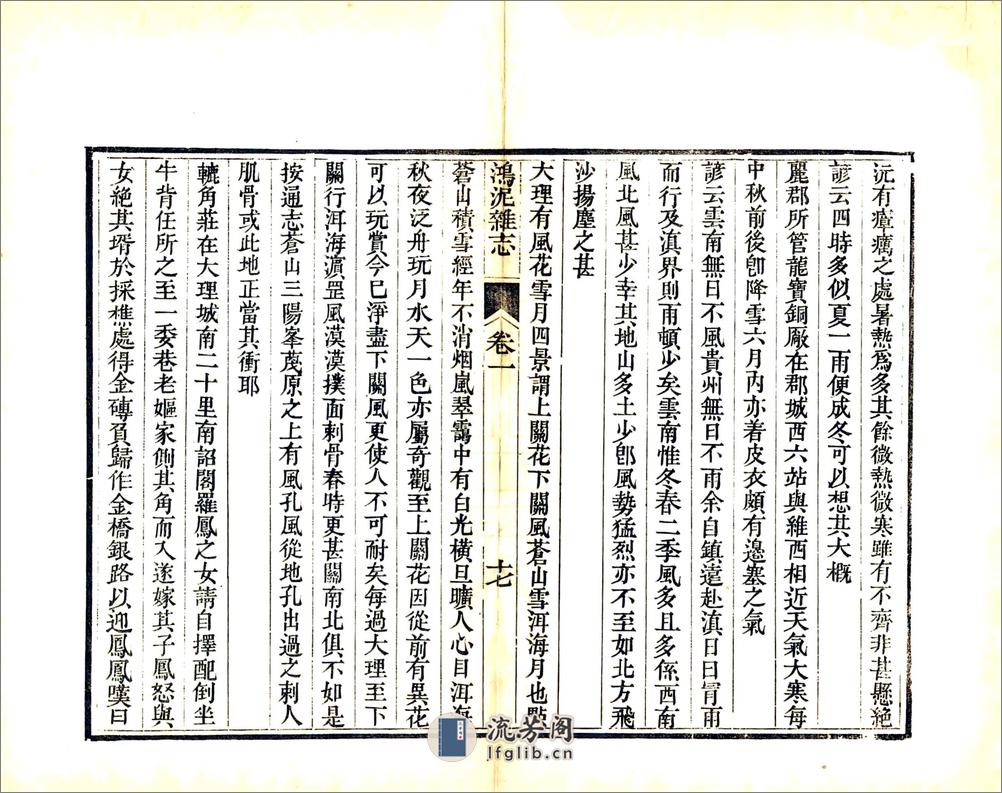 沅有瘴癘之處暑熱爲多其餘微熱微寒雖有不齊非甚懸絶
諺云四時多似夏一雨便成冬可以想其大槪
麗郡所管龍寶銅厰在郡城西六站與維西相近天氣大寒每
中秋前後卽降雪六月內亦着皮衣頗有邊塞之氣
諺云雲南無日不風貴州無日不雨余自鎮遠赴滇日日冐雨
而行及滇界則雨頓少矣雲南惟冬春二季風多且多係西南
風北風甚少幸其地山多土少卽風勢猛烈亦不至如北方飛
沙揚塵之甚
大理有風花雪月四景謂上關花下關風蒼山雪洱海月也點
鴻泥雜志
卷一
十七
蒼山積雪經年不消烟嵐翠靄中有白光橫亘曠人心目洱海
秋夜泛舟玩月水天一色亦屬奇觀至上關花因從前有異花
可以玩賞今已淨盡下關風更使人不可耐矣每過大理至下
關行洱海濵罡風漠漠撲面刺骨春時更甚關南北俱不如是
按通志蒼山三陽峯茂原之上有風孔風從地孔出過之刺人
肌骨或此地正當其衝耶
轆角莊在大理城南二十里南詔閣羅鳳之女請自擇配倒坐
牛背任所之至一委巷老嫗家側其角而入遂嫁其子鳳怒與
女絶其壻於採樵處得金磚負歸作金橋銀路以迎鳳鳳嘆曰
流芳阁
lfglib.cn